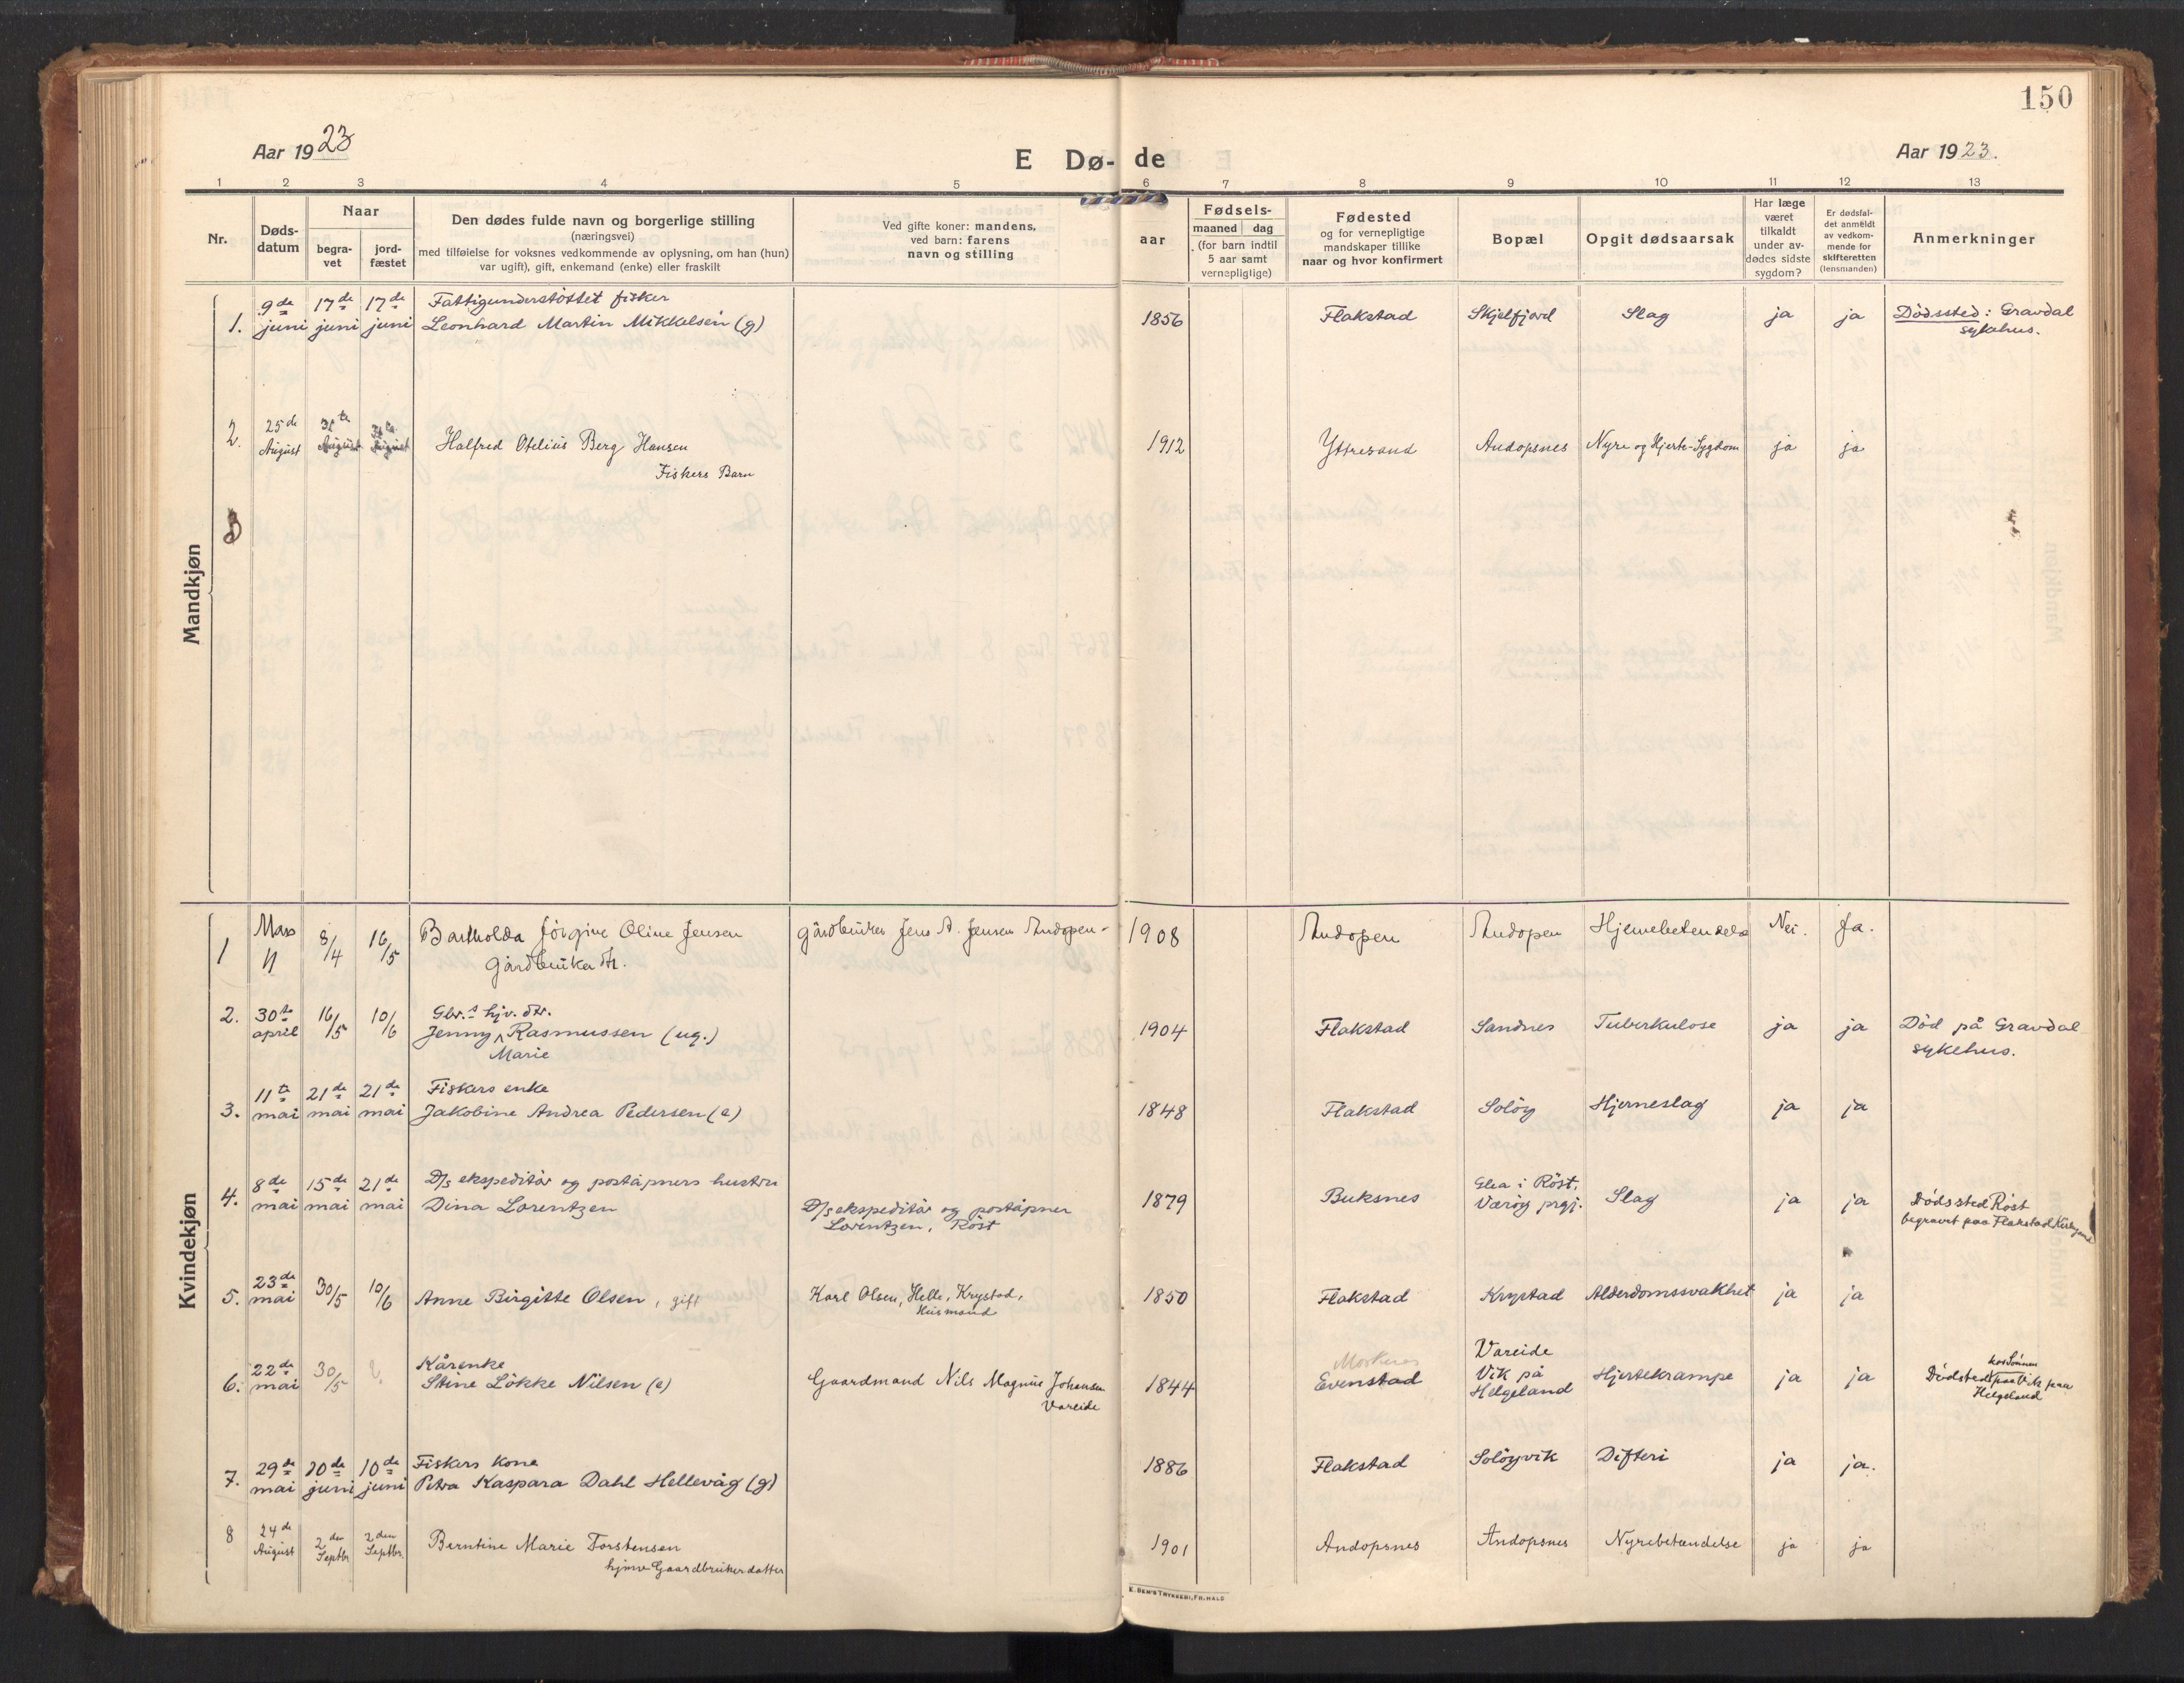 150
Aar 1923
E Dø-
de
Aar 1923.
1 2 3 4 5 6 7 8 9 10 11 12 13
Nr.
Døds-
datum
Naar
begra-
vet
jord-
fæstet
Den dødes fulde navn og borgerlige stilling
(næringsvei)
med tilføielse for voksnes vedkommende av oplysning, om han (hun)
var ugift), gift, enkemand (enke) eller fraskilt
Ved gifte koner: mandens,
ved barn: farens
navn og stilling
aar
Fødsels-
maaned dag
(for barn indtil
5 aar samt
vernepligtige)
Fødested
og for vernepligtige
mandskaper tillike
naar og hvor konfirmert
Bopæl
Opgit dødsaarsak
Har læge
været
tilkaldt
under av-
dødes sidste
sygdom?
Er dødsfal-
det anmeldt
av vedkom-
mende for
skifteretten
(lensmanden)
Anmerkninger
Mandkjøn
1. 9de juni 17de juni 17de juni
Fattigunderstöttet fisker
Leonhard Martin Mikkelsen (g)
1856 Flakstad Skjelfjord Slag ja ja Dödssted: Gravdal
sykehus.
2. 25de August 31te August 31te August
Halfred Otelius Berg Hansen
Fiskers Barn
1912 Yttresand Andopsnes Nyre og Hjerte-Sygdom ja ja
3
Kvindekjøn
1 Mars 8/4 16/5
Bartholda Jörgine Oline Jensen
Gårdbruker dtr.
gårdbruker Jens A. Jensen Andopen
1908 Andopen Andopen Nei. Ja.
2. 30te april 16/5 10/6
Gbr.s hjv. dtr.
Jenny Rasmussen (ug.)
Marie
1904 Flakstad Sandnes Tuberkulose ja ja Död på Gravdal
sykehus.
3. 11te mai 21de mai 21de mai
Fiskers enke
Jakobine Andrea Pedersen (e)
1848 Flakstad Solöy Hjerneslag ja ja
4. 8de mai 15de mai 21de mai
D/s ekspeditör og poståpners hustru
Dina Lorentzen
D/s ekspeditör og poståpner
Lorentzen, Röst
1879 Buksnes Glea i Röst,
Værøy prgj. Slag ja ja Dødssted Røst
begravet paa Flakstad Kirkegaard
5. 23de mai 30/5 10/6
Anne Birgitte Olsen, gift
Karl Olsen, Helle, Krystad,
Husmand
1850 Flakstad Krystad Alderdomssvakhet ja ja
6. 22de mai 30/5 ?
Kårenke
Stine Lökke Nilsen (e)
Gaardmand Nils Magnus Johansen
Vareide
1844 Moskenes
Evenstad
Vareide
Vik på
Helgeland
Hjertekrampe ja ja
hos Sønnen
Dødsted paa Vik paa
Helgeland
7. 29de mai 10de juni 10de juni
Fiskers kone
Petra Kaspara Dahl Hellevåg (g)
1886 Flakstad Solöyvik Difteri ja ja.
8 24de August 2den Septbr. 2den Septbr.
Berntine Marie Torstensen
hjmv Gaardbruker datter
1901 Andopsnes Andopsnes Nyrebetændelse ja ja
E. SEM'S TRYKKERI, FR.HALD